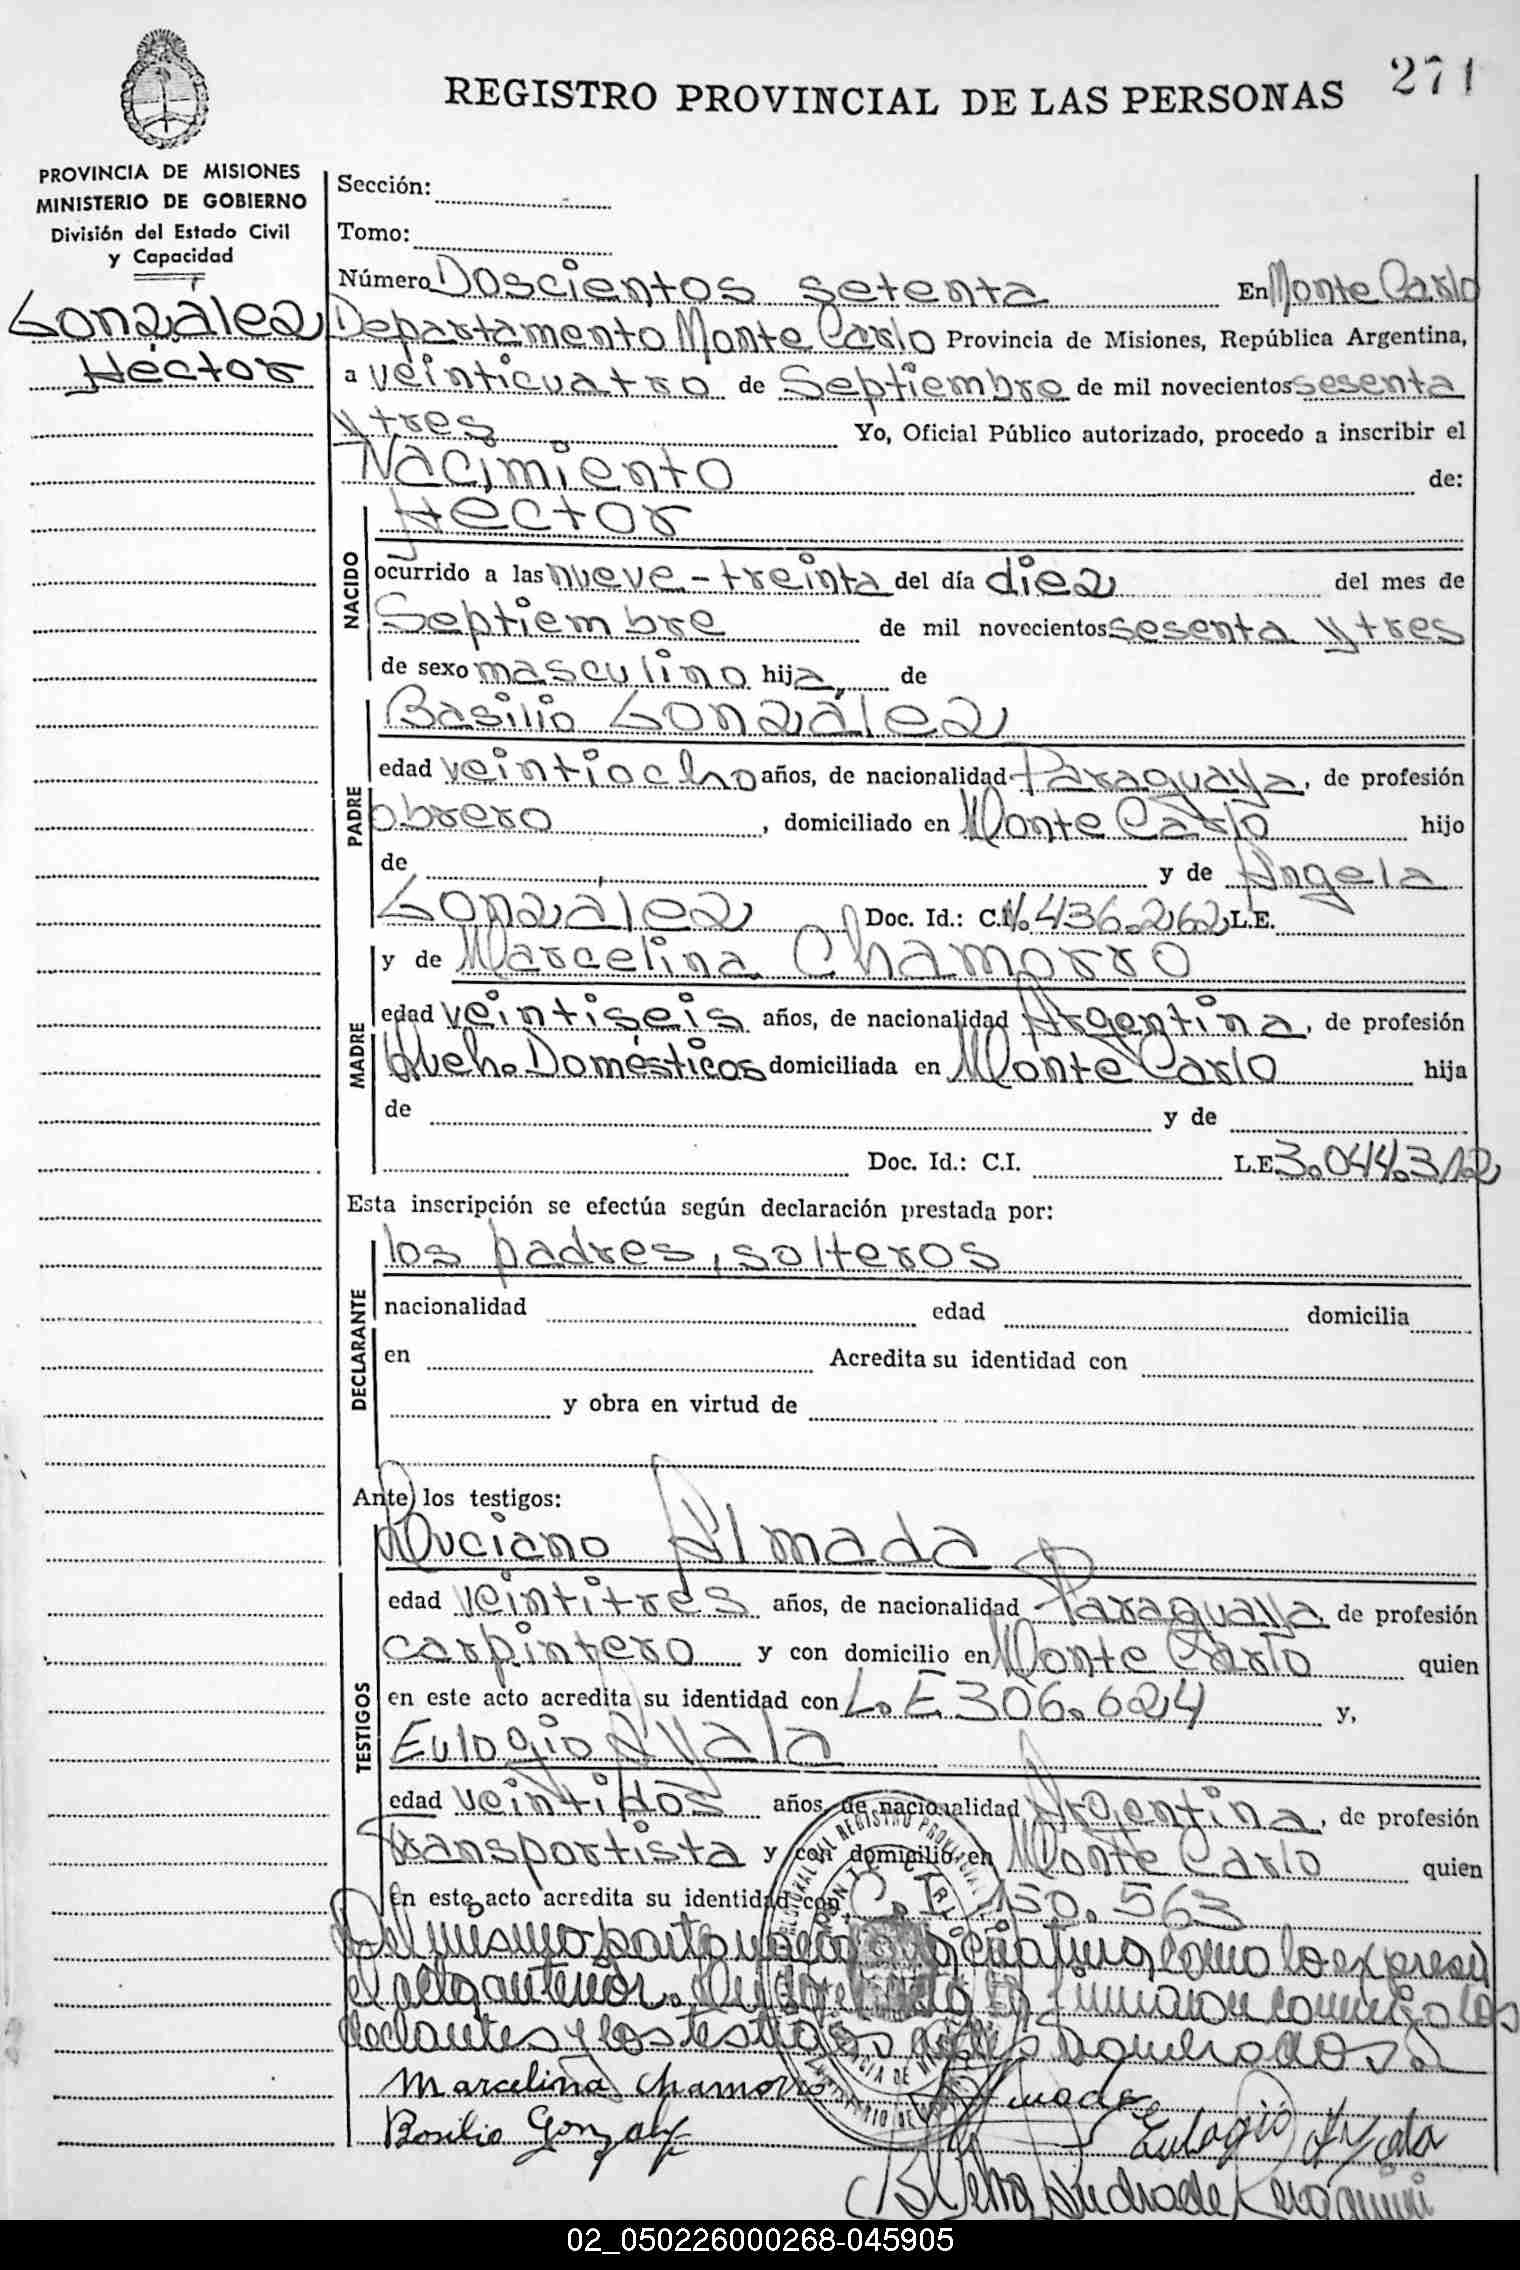 271
REGISTRO PROVINCIAL DE LAS PERSONAS
PROVINCIA DE MISIONES
MINISTERIO DE GOBIERNO
División del Estado Civil
y Capacidad
González
Héctor
Sección:
Tomo:
Número Doscientos setenta En Monte Carlo
Departamento Monte Carlo Provincia de Misiones, República Argentina,
a veinticuatro de Septiembre de mil novecientos sesenta
y tres Yo, Oficial Público autorizado, procedo a inscribir el
Nacimiento de:
NACIDO
Hector
ocurrido a las nueve-treinta del día diez del mes de
Septiembre de mil novecientos sesenta y tres
de sexo masculino hija, de
PADRE
Basilio González
edad veintiocho años, de nacionalidad Paraguaya, de profesión
obrero, domiciliado en Monte Carlo hijo
de y de Angela
González Doc. Id.: C.I. 436.262 L.E.
MADRE
y de Marcelina Chamorro
edad veintiseis años, de nacionalidad Argentina, de profesión
Queh. Domésticos domiciliada en Monte Carlo hija
de y de
Doc. Id.: C.I. L.E. 3.044.312
Esta inscripción se efectúa según declaración prestada por:
DECLARANTE
los padres, solteros
nacionalidad edad domicilia
en Acredita su identidad con
y obra en virtud de
Ante los testigos:
TESTIGOS
Luciano Almada
edad veintitres años, de nacionalidad Paraguaya de profesión
carpintero y con domicilio en Monte Carlo quien
en este acto acredita su identidad con L.E. 306.624 y,
Eulogio Ayala
edad veintidos años, de nacionalidad Argentina, de profesión
transportista y con domicilio en Monte Carlo quien
en este acto acredita su identidad con C.I. 150.563
Del mismo parto nació criatura como lo expresa
el acta anterior. firmaron conmigo los
declantes y los testigos nombrados
Marcelina Chamorro Almada
Basilio Gonzalez Eulogio Ayala
Andrade
02_050226000268-045905